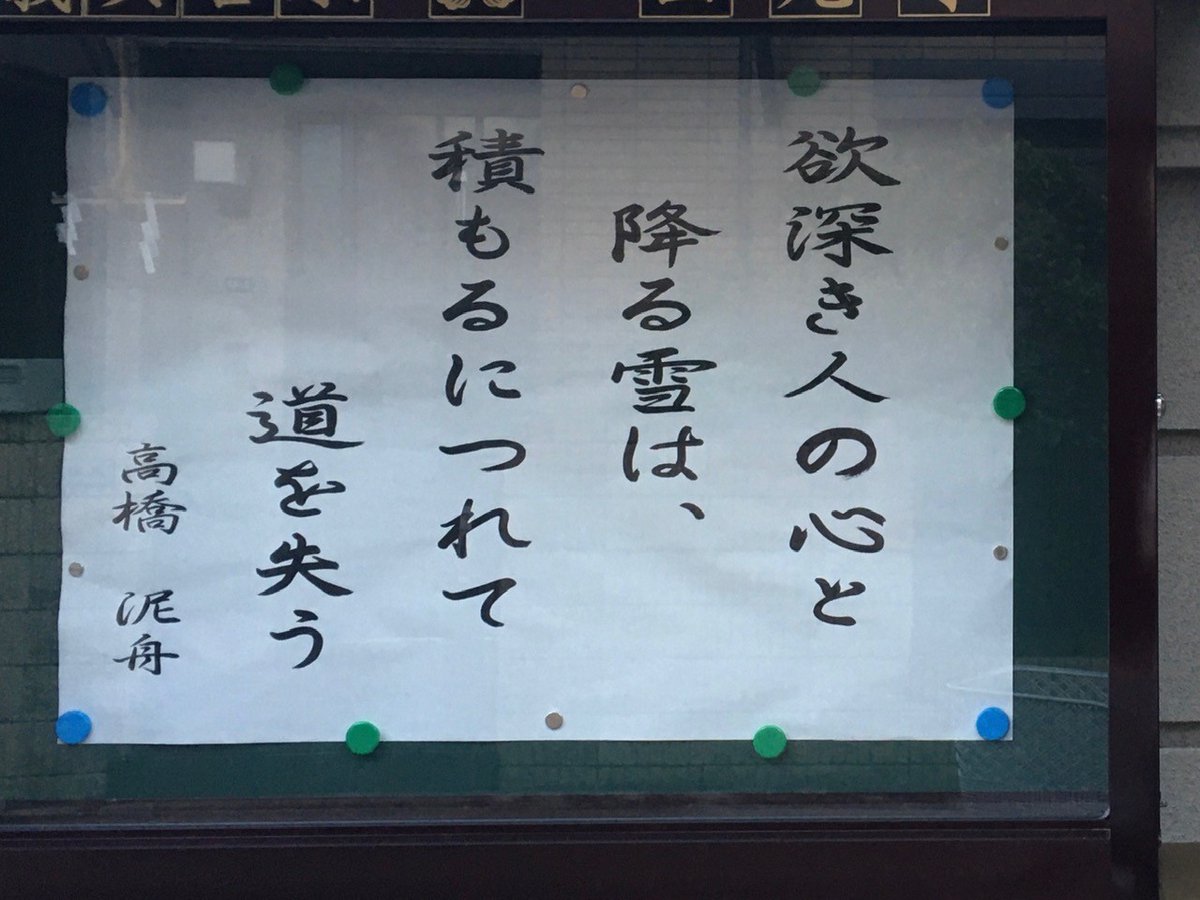 欲深き人の心と
降る雪は、
積もるにつれて
道を失う
高橋 泥舟